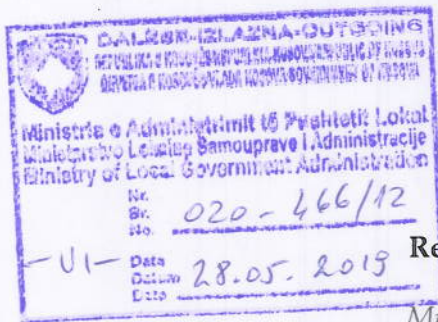 DALËSE-IZLAZNA-OUTGOING
Ministria e Administrimit të Pushtetit Lokal
Ministarstvo Lokalne Samouprave i Administracije
Ministry of Local Government Administration
Nr.
Br.
No.
020-466/12
-VI-
Data
Datum
Date
28.05.2019
Re
Mi